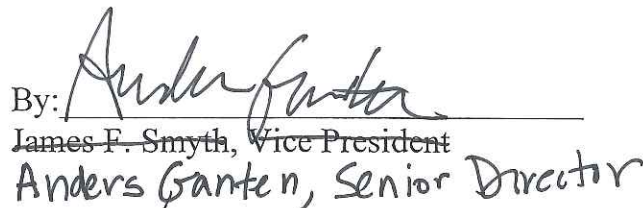 By: Anders Ganten
James F. Smyth, Vice President
Anders Ganten, Senior Director